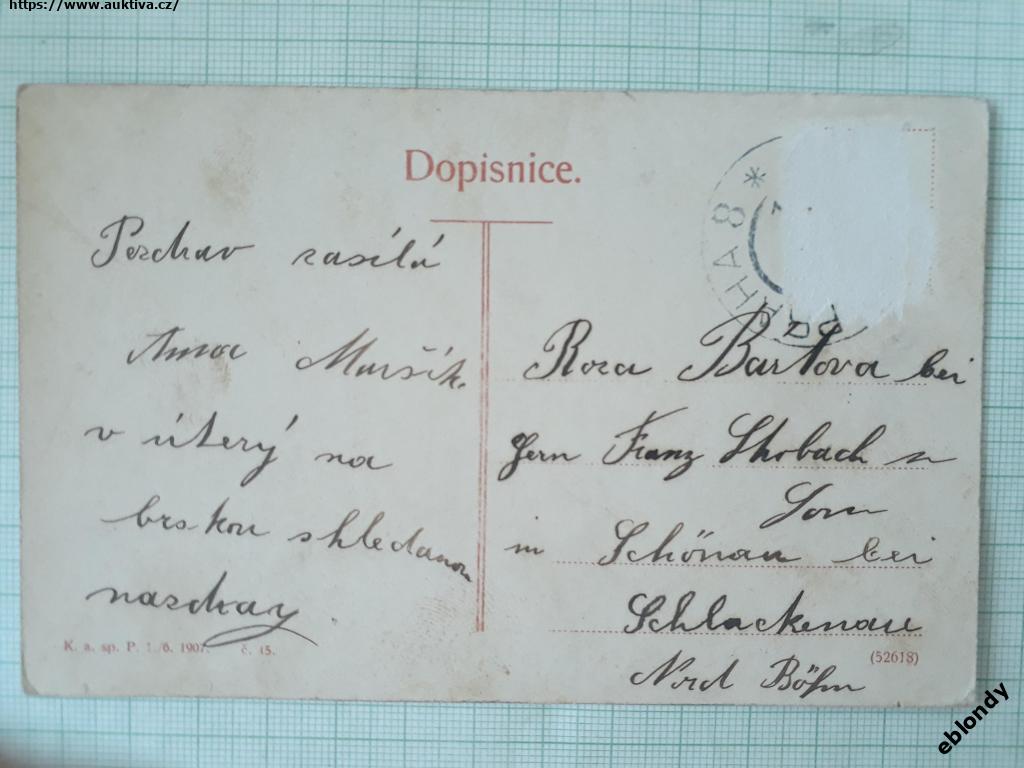 https://www.auktiva.cz/
Dopisnice.
Pozdrav zasílá
Anna Muršík.
v úterý na
brskou shledanou
nazdray
K. a. sp. P. 1./6. 1907. č. 15.
PRAHA 8 *
Roza Bartova bei
Hern Franz Strobach
Sorn
in Schönau bei
Schlackenau
Nord Böhm
(52618)
eblondy